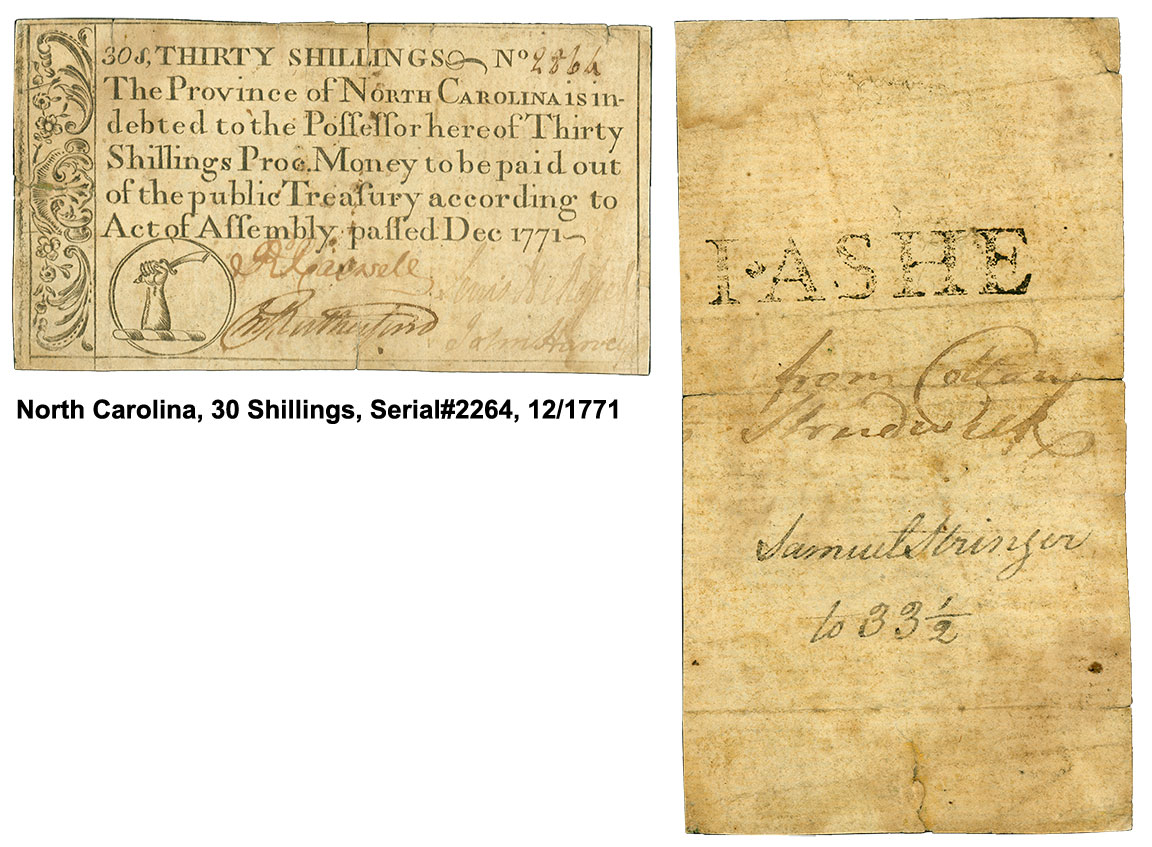 30s, THIRTY SHILLINGS Nº 2864
The Province of NORTH CAROLINA is in-
debted to the Poſſeſſor hereof Thirty
Shillings Proc. Money to be paid out
of the public Treaſury according to
Act of Aſſembly paſſed Dec 1771
Rd Caswell
Rutherfurd
John Harvey
North Carolina, 30 Shillings, Serial#2264, 12/1771
I·ASHE
from Cottan
Strudwick
Samuel Stringer
to 33 1/2